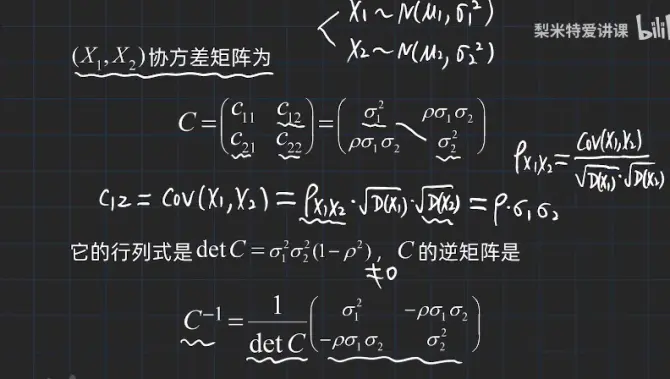 X₁~N(μ₁,σ₁²)
梨米特爱讲课 bili
X₂~N(μ₂,σ₂²)
(X₁,X₂)协方差矩阵为
C=(c₁₁ c₁₂; c₂₁ c₂₂)=(σ₁² ρσ₁σ₂; ρσ₁σ₂ σ₂²)
ρ_{X₁X₂}=Cov(X₁,X₂)/(√D(X₁)·√D(X₂))
C₁₂=Cov(X₁,X₂)=ρ_{X₁X₂}·√D(X₁)·√D(X₂)=ρ·σ₁σ₂
它的行列式是 det C=σ₁²σ₂²(1-ρ²), C 的逆矩阵是
≠0
C⁻¹=1/det C (σ₁² -ρσ₁σ₂; -ρσ₁σ₂ σ₂²)